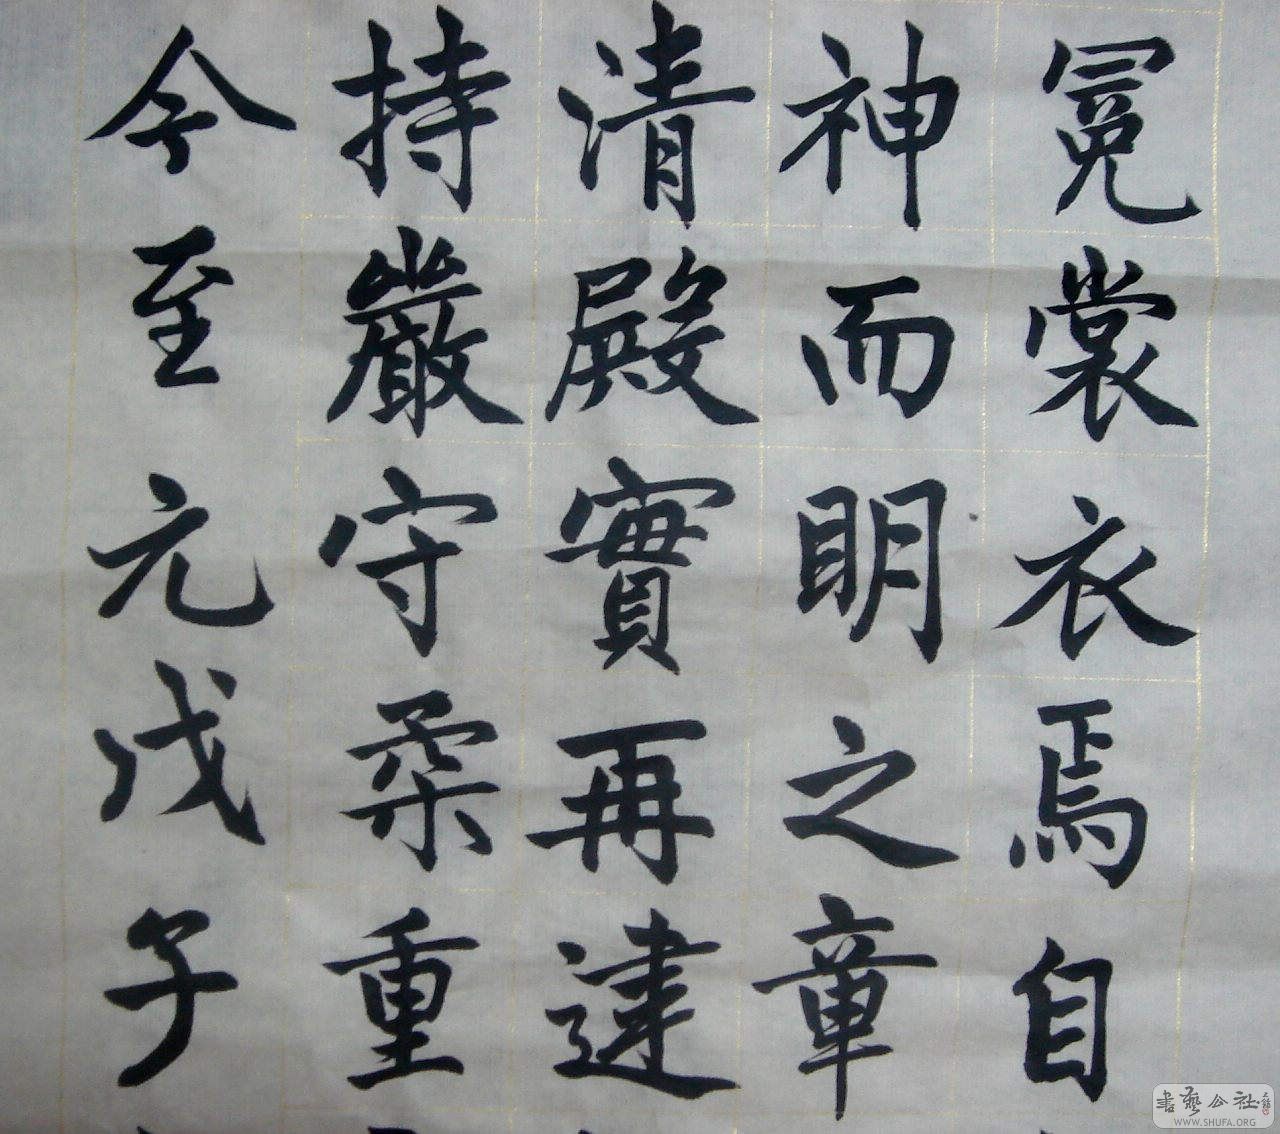 冕裳衣焉自
神而明之章
清殿實再建
持嚴守柔重
今至元戊子
書藝公社
WWW.SHUFA.ORG